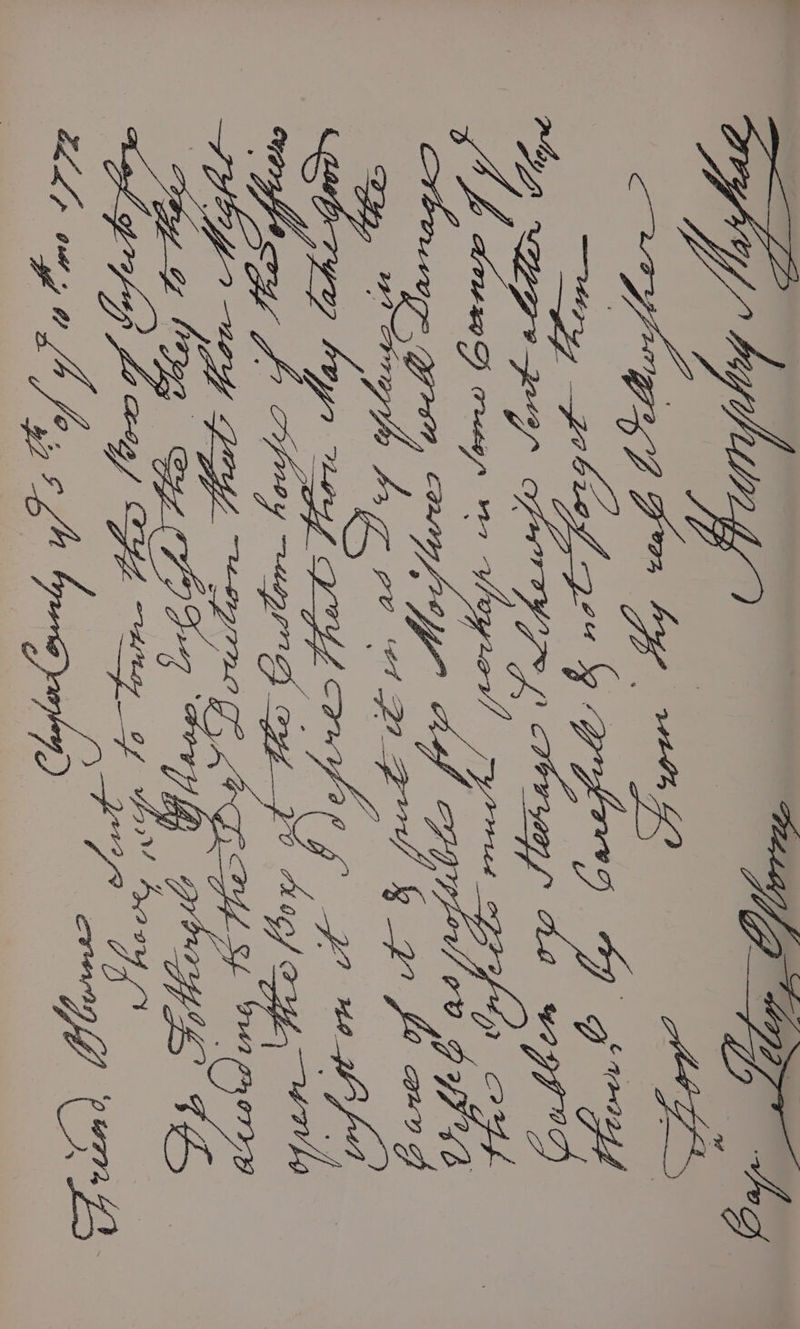 Chester County ye 5th of ye 10th mo 1772
Friend, Osburne
I have sent
up to town the Box of Insects for
Dr Fothergill & have Inclosed the Key to thee
according to the Drs Direction that thou Might
open the Box at the Custom house if the officers
insist on it I desire that thou May take good
Care of it & put it in as Dry a place in the
Vessel as possible for Moisture will Damage
the Insects much perhaps in some Corner of ye
Cabben or Steerage I Likewise sent a letter I hope
thou'l be Carefull & not forget them
From thy real Wellwisher
Humphry Marshall
For
Cap. Peter Osborne